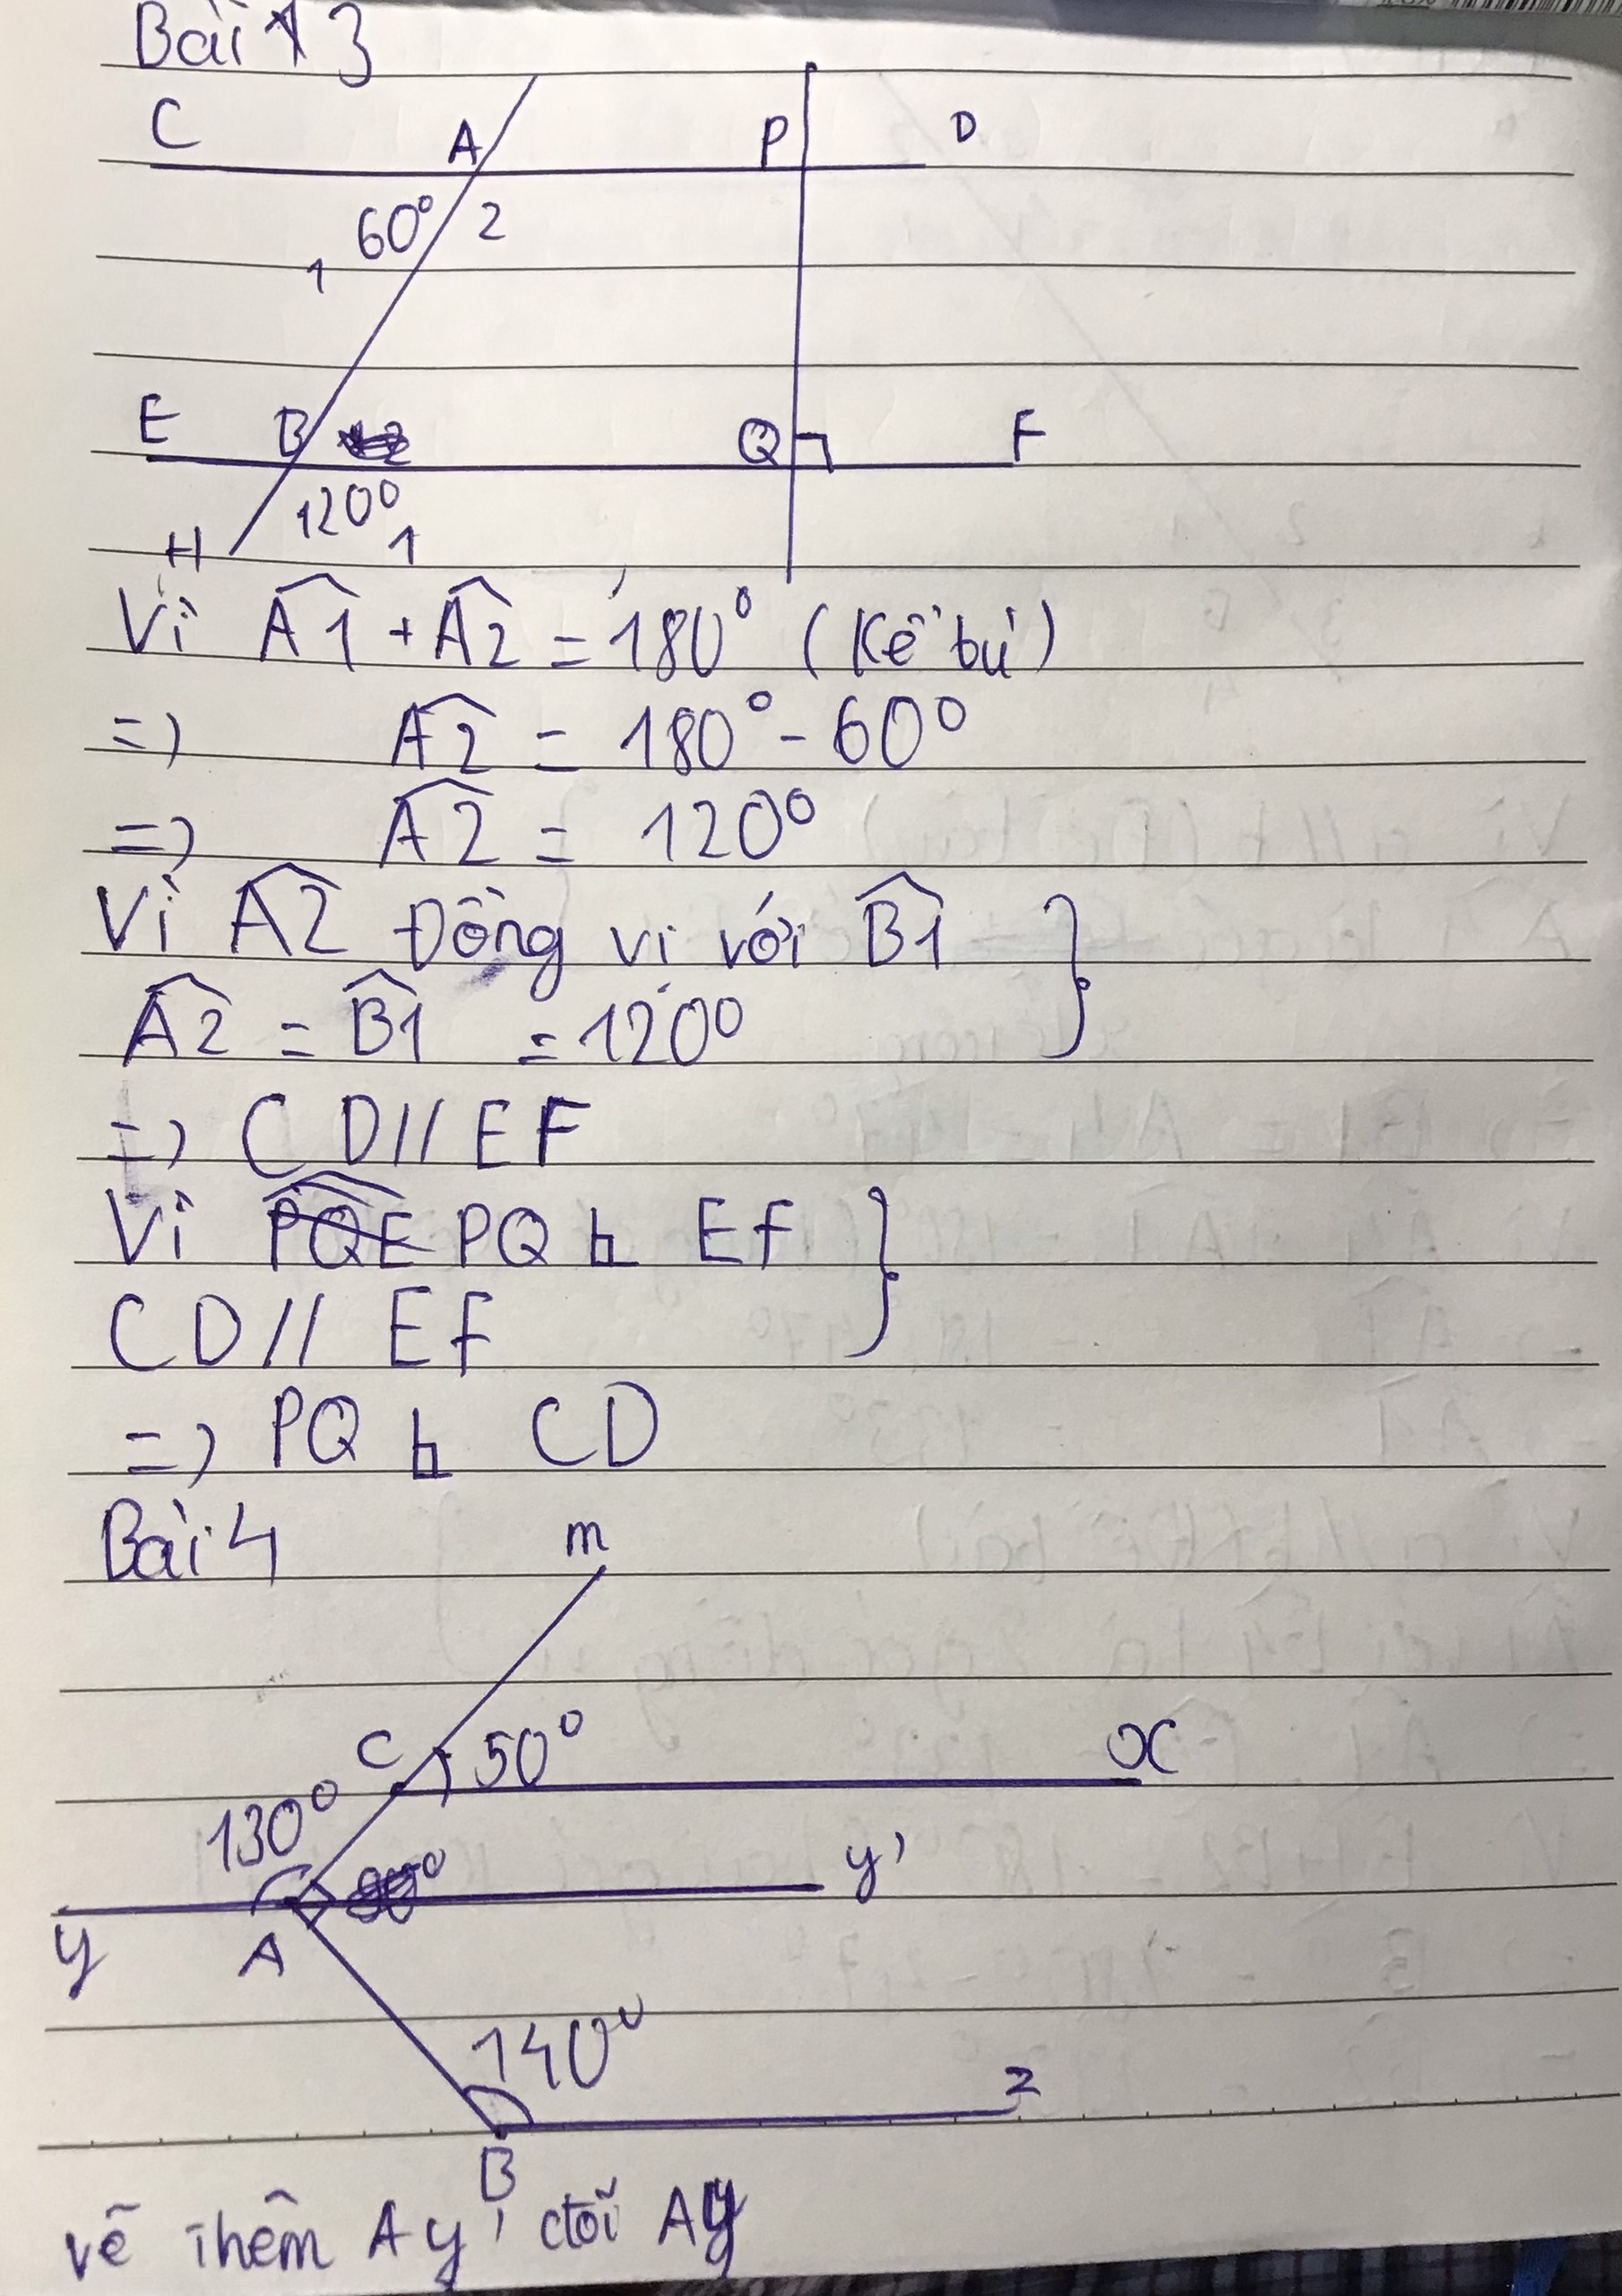 Bài 3
C A P D
60° 2
1
E B Q F
120°
H 1
Vì A1 + A2 = 180° (Kề bù)
=) A2 = 180° - 60°
=) A2 = 120°
Vì A2 Đồng vị với B1 }
A2 = B1 = 120°
=) CD // EF
Vì PQE PQ ⊥ EF }
CD // EF
=) PQ ⊥ CD
Bài 4
m
C 50° x
130°
y'
y A
140°
z
B
vẽ thêm Ay' đối Ay